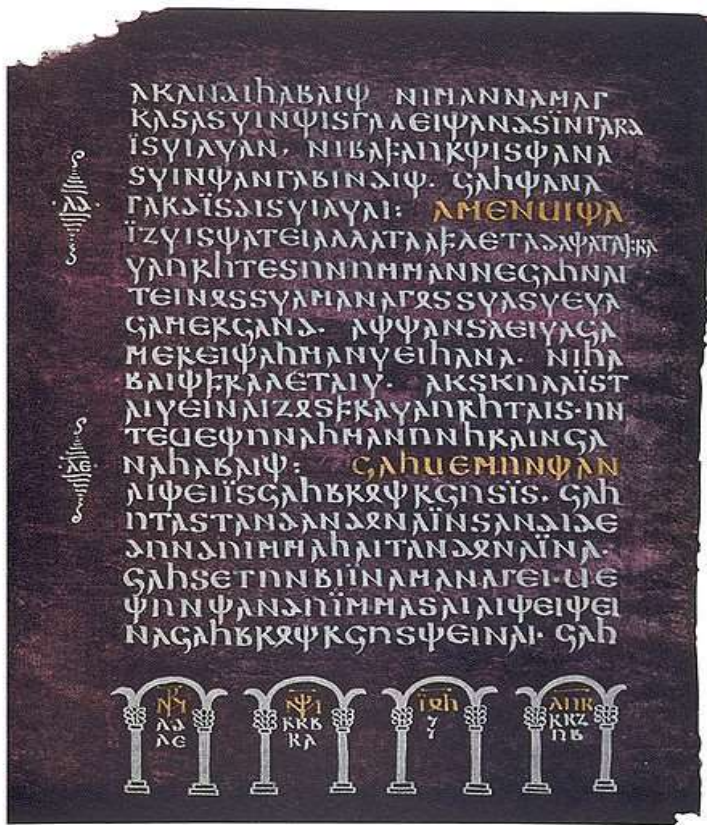 𐌰𐌺𐌰𐌽𐌳𐌹𐌷𐌰𐌱𐌰𐌹𐌸 𐌽𐌹𐌼𐌰𐌽𐌽𐌰𐌼𐌰𐌲
𐌺𐌰𐍃𐌰𐍃𐍅𐌹𐌽𐌸𐌹𐍃𐌲𐌰𐌻𐌴𐌹𐌸𐌰𐌽𐌳𐍃𐌹̈𐌽𐌲𐌰𐍂𐌳
𐌹̈𐍃𐍅𐌹𐌻𐍅𐌰𐌽· 𐌽𐌹𐌱𐌰𐍆𐌰𐌿𐍂𐌸𐌹𐍃𐌸𐌰𐌽𐌰
𐌻𐌳
𐍃𐍅𐌹𐌽𐌸𐌰𐌽𐌲𐌰𐌱𐌹𐌽𐌳𐌹𐌸· 𐌾𐌰𐌷𐌸𐌰𐌽𐌰
𐌲𐌰𐍂𐌳𐌹̈𐍃𐌳𐌹𐍃𐍅𐌹𐌻𐍅𐌰𐌹: 𐌰𐌼𐌴𐌽𐌵𐌹𐌸𐌰
𐌹̈𐌶𐍅𐌹𐍃𐌸𐌰𐍄𐌴𐌹𐌰𐌻𐌻𐌰𐍄𐌰𐌰𐍆𐌻𐌴𐍄𐌰𐌳𐌰𐌸𐌰𐍄𐌰𐍆𐍂𐌰
𐍅𐌰𐌿𐍂𐌷𐍄𐌴𐍃𐌿𐌽𐌿𐌼𐌼𐌰𐌽𐌽𐌴𐌾𐌰𐌷𐌽𐌰𐌹
𐍄𐌴𐌹𐌽𐍉𐍃𐍃𐍅𐌰𐌼𐌰𐌽𐌰𐌲𐍉𐍃𐍃𐍅𐌰𐍃𐍅𐌴𐍅𐌰
𐌾𐌰𐌼𐌴𐍂𐌾𐌰𐌽𐌳· 𐌰𐌸𐌸𐌰𐌽𐍃𐌰𐌴𐌹𐍅𐌰𐌾𐌰
𐌼𐌴𐍂𐌴𐌹𐌸𐌰𐌷𐌼𐌰𐌽𐍅𐌴𐌹𐌷𐌰𐌽𐌰· 𐌽𐌹𐌷𐌰
𐌱𐌰𐌹𐌸𐍆𐍂𐌰𐌻𐌴𐍄𐌰𐌹𐍅· 𐌰𐌺𐍃𐌺𐌿𐌻𐌰𐌹̈𐍃𐍄
𐌰𐌹𐍅𐌴𐌹𐌽𐌰𐌹𐌶𐍉𐍃𐍆𐍂𐌰𐍅𐌰𐌿𐍂𐌷𐍄𐌰𐌹𐍃·𐌿𐌽
𐍄𐌴𐌵𐌴𐌸𐌿𐌽𐌰𐌷𐌼𐌰𐌽𐌿𐌽𐌷𐍂𐌰𐌹𐌽𐌾𐌰
𐌻𐌴
𐌽𐌰𐌷𐌰𐌱𐌰𐌹𐌸: 𐌾𐌰𐌷𐌵𐌴𐌼𐌿𐌽𐌸𐌰𐌽
𐌰𐌹𐌸𐌴𐌹𐌹̈𐍃𐌾𐌰𐌷𐌱𐍂𐍉𐌸𐍂𐌾𐌿𐍃𐌹̈𐍃· 𐌾𐌰𐌷
𐌿𐍄𐌰𐍃𐍄𐌰𐌽𐌳𐌰𐌽𐌳𐍉𐌽𐌰𐌹̈𐌽𐍃𐌰𐌽𐌳𐌹𐌳𐌴
𐌳𐌿𐌽𐌳𐌿𐌹𐌼𐌼𐌰𐌷𐌰𐌹𐍄𐌰𐌽𐌳𐍉𐌽𐌰𐌹̈𐌽𐌰·
𐌾𐌰𐌷𐍃𐌴𐍄𐌿𐌽𐌱𐌹𐌹̈𐌽𐌰𐌼𐌰𐌽𐌰𐌲𐌴𐌹·𐌵𐌴
𐌸𐌿𐌽𐌸𐌰𐌽𐌳𐌿𐌹̈𐌼𐌼𐌰𐍃𐌰𐌹𐌰𐌹𐌸𐌴𐌹𐌸𐌴𐌹
𐌽𐌰𐌾𐌰𐌷𐌱𐍂𐍉𐌸𐍂𐌾𐌿𐍃𐌸𐌴𐌹𐌽𐌰𐌹· 𐌾𐌰𐌷